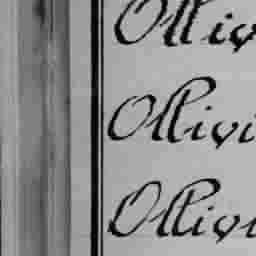 Olliv
Ollivi
Ollivi